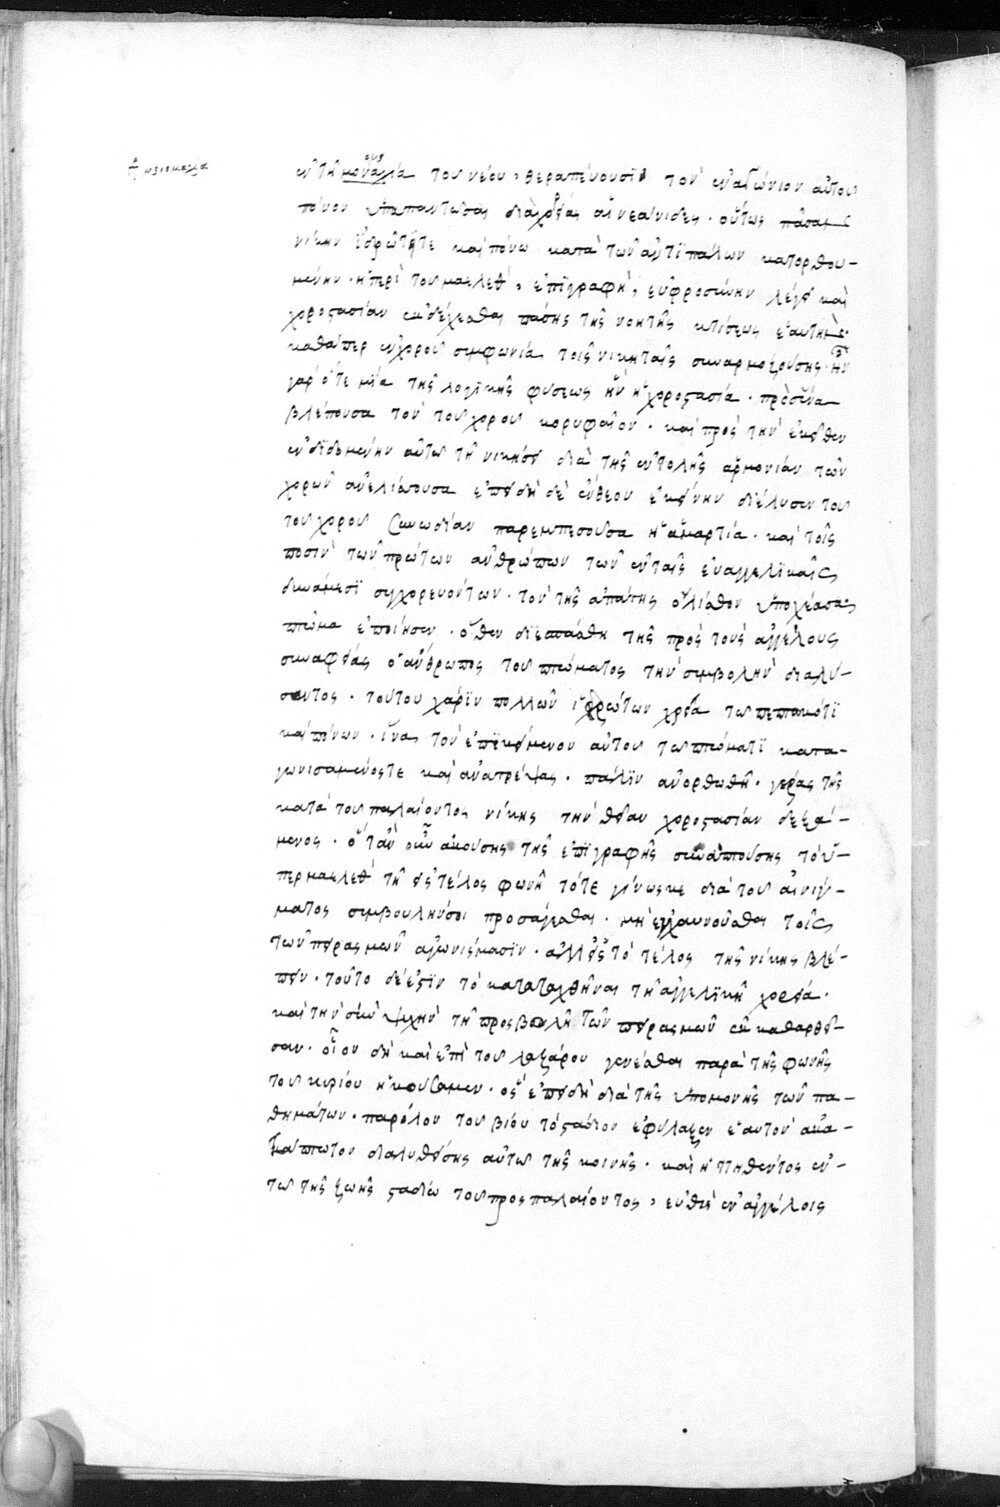 ἢ μονομαχία
ἐν τῇ μοναλία τοῦ νέου, θεραπεύουσι τὸν ἐναγώνιον αὐτοῦ
πόνον ὑπαπαντῶσαι διὰ χορείας αἱ νεανίδες. οὕτως πᾶσαν
νίκην ἱδρῶτί τε καὶ πόνω κατὰ τῶν ἀντιπάλων κατορθου-
μένην. ἡ περὶ τοῦ μαελεθ, ἐπιγραφὴ, εὐφροσύνην λέγει καὶ
χοροστασίαν ἐκδέχεσθαι πάσης τῆς νοητῆς κτίσεως ἑαυτὴν
καθάπερ ἐν χοροῦ συμφωνία τοῖς νικηταῖς συναρμοζούσης. ἦν
γὰρ ὅτε μία τῆς λογικῆς φύσεως ἦν ἡ χοροστασία. πρὸς ἕνα
βλέπουσα τὸν τοῦ χοροῦ κορυφαῖον. καὶ πρὸς τὴν ἐκεῖθεν
ἐνδιδομένην αὐτῶ τῇ κινήσει διὰ τῆς ἐντολῆς ἁρμονίαν τῶν
χορῶν ἀνελίσσουσα ἐπειδὴ δὲ ἔνθεον ἐκείνην διέλυσεν τοῦ
τοῦ χοροῦ συνωδίαν παρεμπεσοῦσα ἡ ἁμαρτία. καὶ τοῖς
ποσὶν τῶν πρώτων ἀνθρώπων τῶν ἐν ταῖς εὐαγγελικαῖς
δυνάμεσι συγχορευόντων. τὸν τῆς ἀπάτης ὄλισθον ὑποχέασα
πτῶμα ἐποίησεν. ὅθεν διεσπάσθη τῆς πρὸς τοὺς ἀγγέλους
συναφείας ὁ ἄνθρωπος τοῦ πτώματος τὴν συμβολὴν διαλύ-
σαντος. τούτου χάριν πολλῶν ἱδρώτων χρεία τῶ πεπτωκότι
καὶ πόνων. ἵνα τὸν ἐπικείμενον αὐτοῦ τῶ πτώματι κατα-
γωνισάμενός τε καὶ ἀνατρέψας. πάλιν ἀνορθωθῇ. γέρας τῆς
κατὰ τοῦ παλαίοντος νίκης τὴν θείαν χοροστασίαν δεξά-
μενος. ὅταν οὖν ἀκούσης τῆς ἐπιγραφῆς σιωπούσης τὸ ὑ-
πὲρ μαελεθ τῇ εἰς τέλος φωνῇ τότε γίνωσκε διὰ τοῦ αἰνίγ-
ματος συμβουλήν σοι προσάγεσθαι. μὴ ἐγχαυνοῦσθαι τοῖς
τῶν πειρασμῶν ἀγωνίσμασιν. ἀλλ' εἰς τὸ τέλος τῆς νίκης βλέ-
πειν. τοῦτο δέ ἐστιν τὸ καταταχθῆναι τῇ ἀγγελικῇ χορεία.
καὶ τὴν σὴν ψυχὴν τῇ προσβολῇ τῶν πειρασμῶν ἐκκαθαρθεῖ-
σαν. οἷον δὴ καὶ ἐπὶ τοῦ λαζάρου γενέσθαι παρὰ τῆς φωνῆς
τοῦ κυρίου ἠκούσαμεν. ὃς ἐπειδὴ διὰ τῆς ὑπομονῆς τῶν πα-
θημάτων. παρόλον τοῦ βίου τὸ στάδιον ἐφύλαξεν ἑαυτὸν ἀκα-
τάπτωτον διαλυθείσης αὐτῶ τῆς κοινῆς. καὶ ἡττηθέντος ἐν-
τῶ τῆς ζωῆς σταδίω τοῦ προσπαλαίοντος, εὐθὺς ἐν ἀγγέλοις